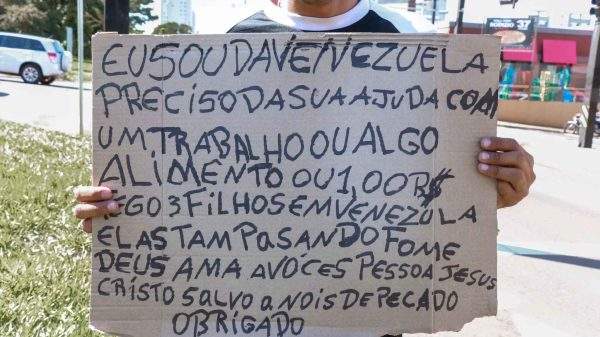 EU SOU DA VENEZUELA
PRECISO DA SUA AJUDA COM
UM TRABALHO OU ALGO
ALIMENTO OU 1,00 R$
TEGO 3 FILHOS EM VENEZULA
ELAS TAM PASANDO FOME
DEUS AMA A VOCES PESSOA JESUS
CRISTO SALVO A NOIS DE PECADO
OBRIGADO
37